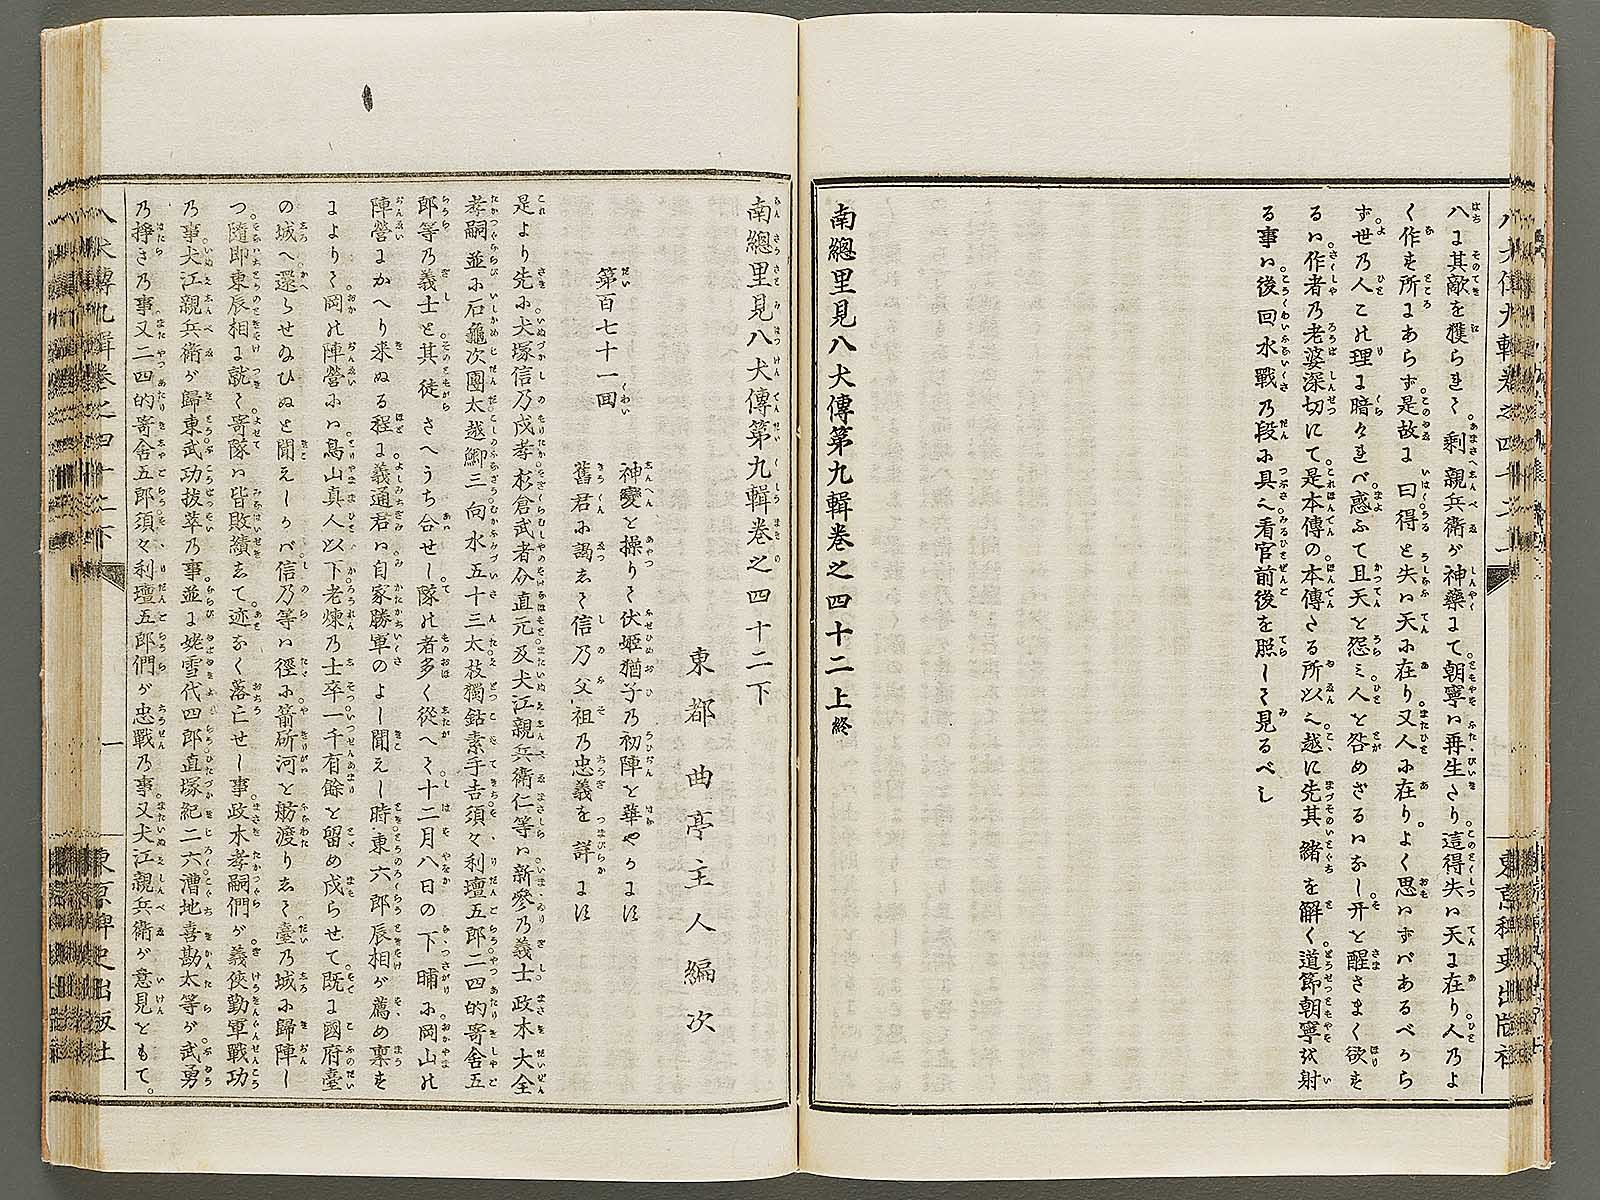 八に其敵を獲られて。剰親兵衛が神藥にて。朝寧は再生たり。這得失は天に在り。人のよ
く作す所にあらず。是故に曰。得と失は天に在り。又人に在り。よく思はずばあるべから
ず。世の人この理に暗ければ。惑ふて且天を怨み。人を咎めざるはなし。开を醒さまく欲す
るは。作者の老婆深切にて。是本傳の。本傳たる所以。越に先其緒を解く。道節朝寧を射
る事は。後回水戰の段に具。看官前後を照して見るべし
南總里見八犬傳第九輯卷之四十二上終
南總里見八犬傳第九輯卷之四十二下
東都 曲亭主人編次
第百七十一回
神變を操りて伏姫猶子の初陣を華やかにす
舊君に謁して信乃父祖の忠義を詳にす
是より先に。犬塚信乃戍孝。杉倉武者介直元。及犬江親兵衛仁等は。新參の義士。政木大全
孝嗣。並に石龜次團太。越鯽三。向水五十三太。枝獨鈷素手吉。須々利壇五郎。二四的寄舍五
郎等の義士と。其徒さへうち合せし。隊の者多く從へて。十二月八日の下晡に。岡山の
陣營にかへり來ぬる程に。義通君は。自家勝軍のよし聞えし時。東六郎辰相が薦め稟す
によりて。岡の陣營には。鳥山真人以下。老煉の士卒一千有餘を留め戍らせて。既に國府臺
の城へ還らせ給ひぬと聞えしかば。信乃等は徑に。箭斫河を舫渡りして。臺の城に歸陣し
つ。隨即東辰相に就て。寄隊は皆敗績して。迹なく落亡せし事。政木孝嗣們が。義俠勤軍戰功
の事。犬江親兵衛が歸東。武功拔萃の事。並に姥雪代四郎。直塚紀二六。漕地喜勘太等が。武勇
の掙きの事。又二四的寄舍五郎。須々利壇五郎們が忠戰の事。又犬江親兵衛が意見をもて。
八犬傳九輯卷之四十二下
一
東京稗史出版社
東京稗史出版社